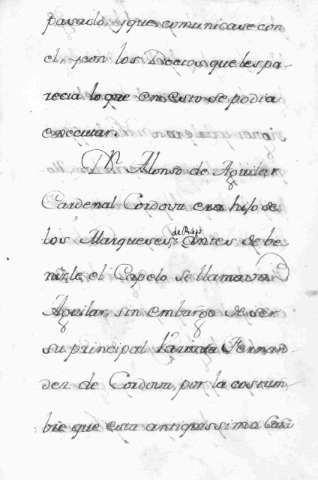 pasado, y que comunicase con
el, y con los Decios que les pa-
recia lo que en esto se podia
executar.
Dn. Alonso de Aguilar
Cardenal Cordova era hijo de
los Marqueses antes de be-
nirle el Capelo se llamava
Aguilar, sin embargo de ser
su principal Fernan-
dez de Cordova, por la costum-
bre que esta antiquissima Casa